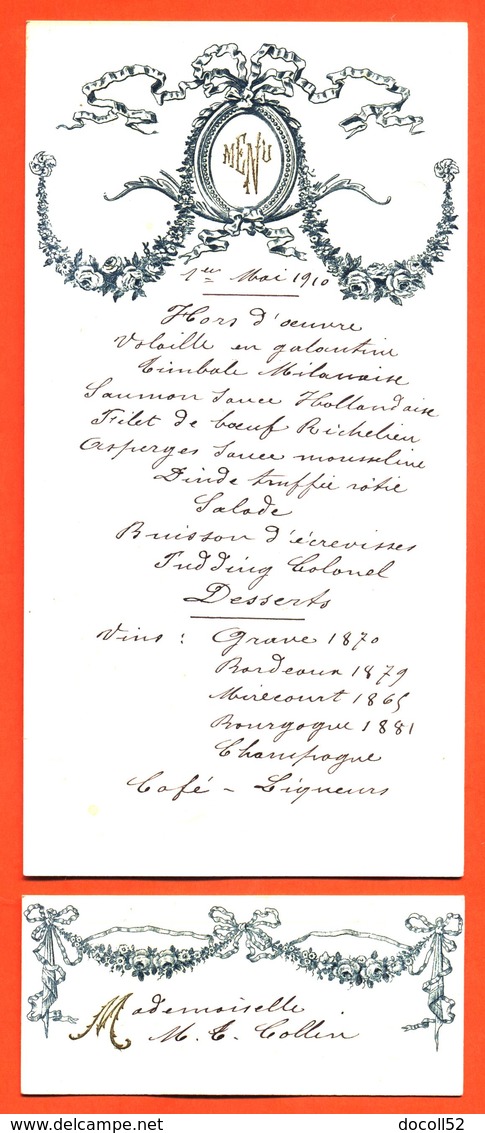 MENU
1er Mai 1910
Hors d'œuvre
Volaille en galantine
Timbale Milanaise
Saumon sauce Hollandaise
Filet de bœuf Richelieu
Asperges sauce mousseline
Dinde truffée rôtie
Salade
Buisson d'écrevisses
Pudding Colonel
Desserts
Vins : Grave 1870
Bordeaux 1879
Mirecourt 1865
Bourgogne 1881
Champagne
Café - Liqueurs
Mademoiselle
M. E. Collin
delcampe.net
docoll52